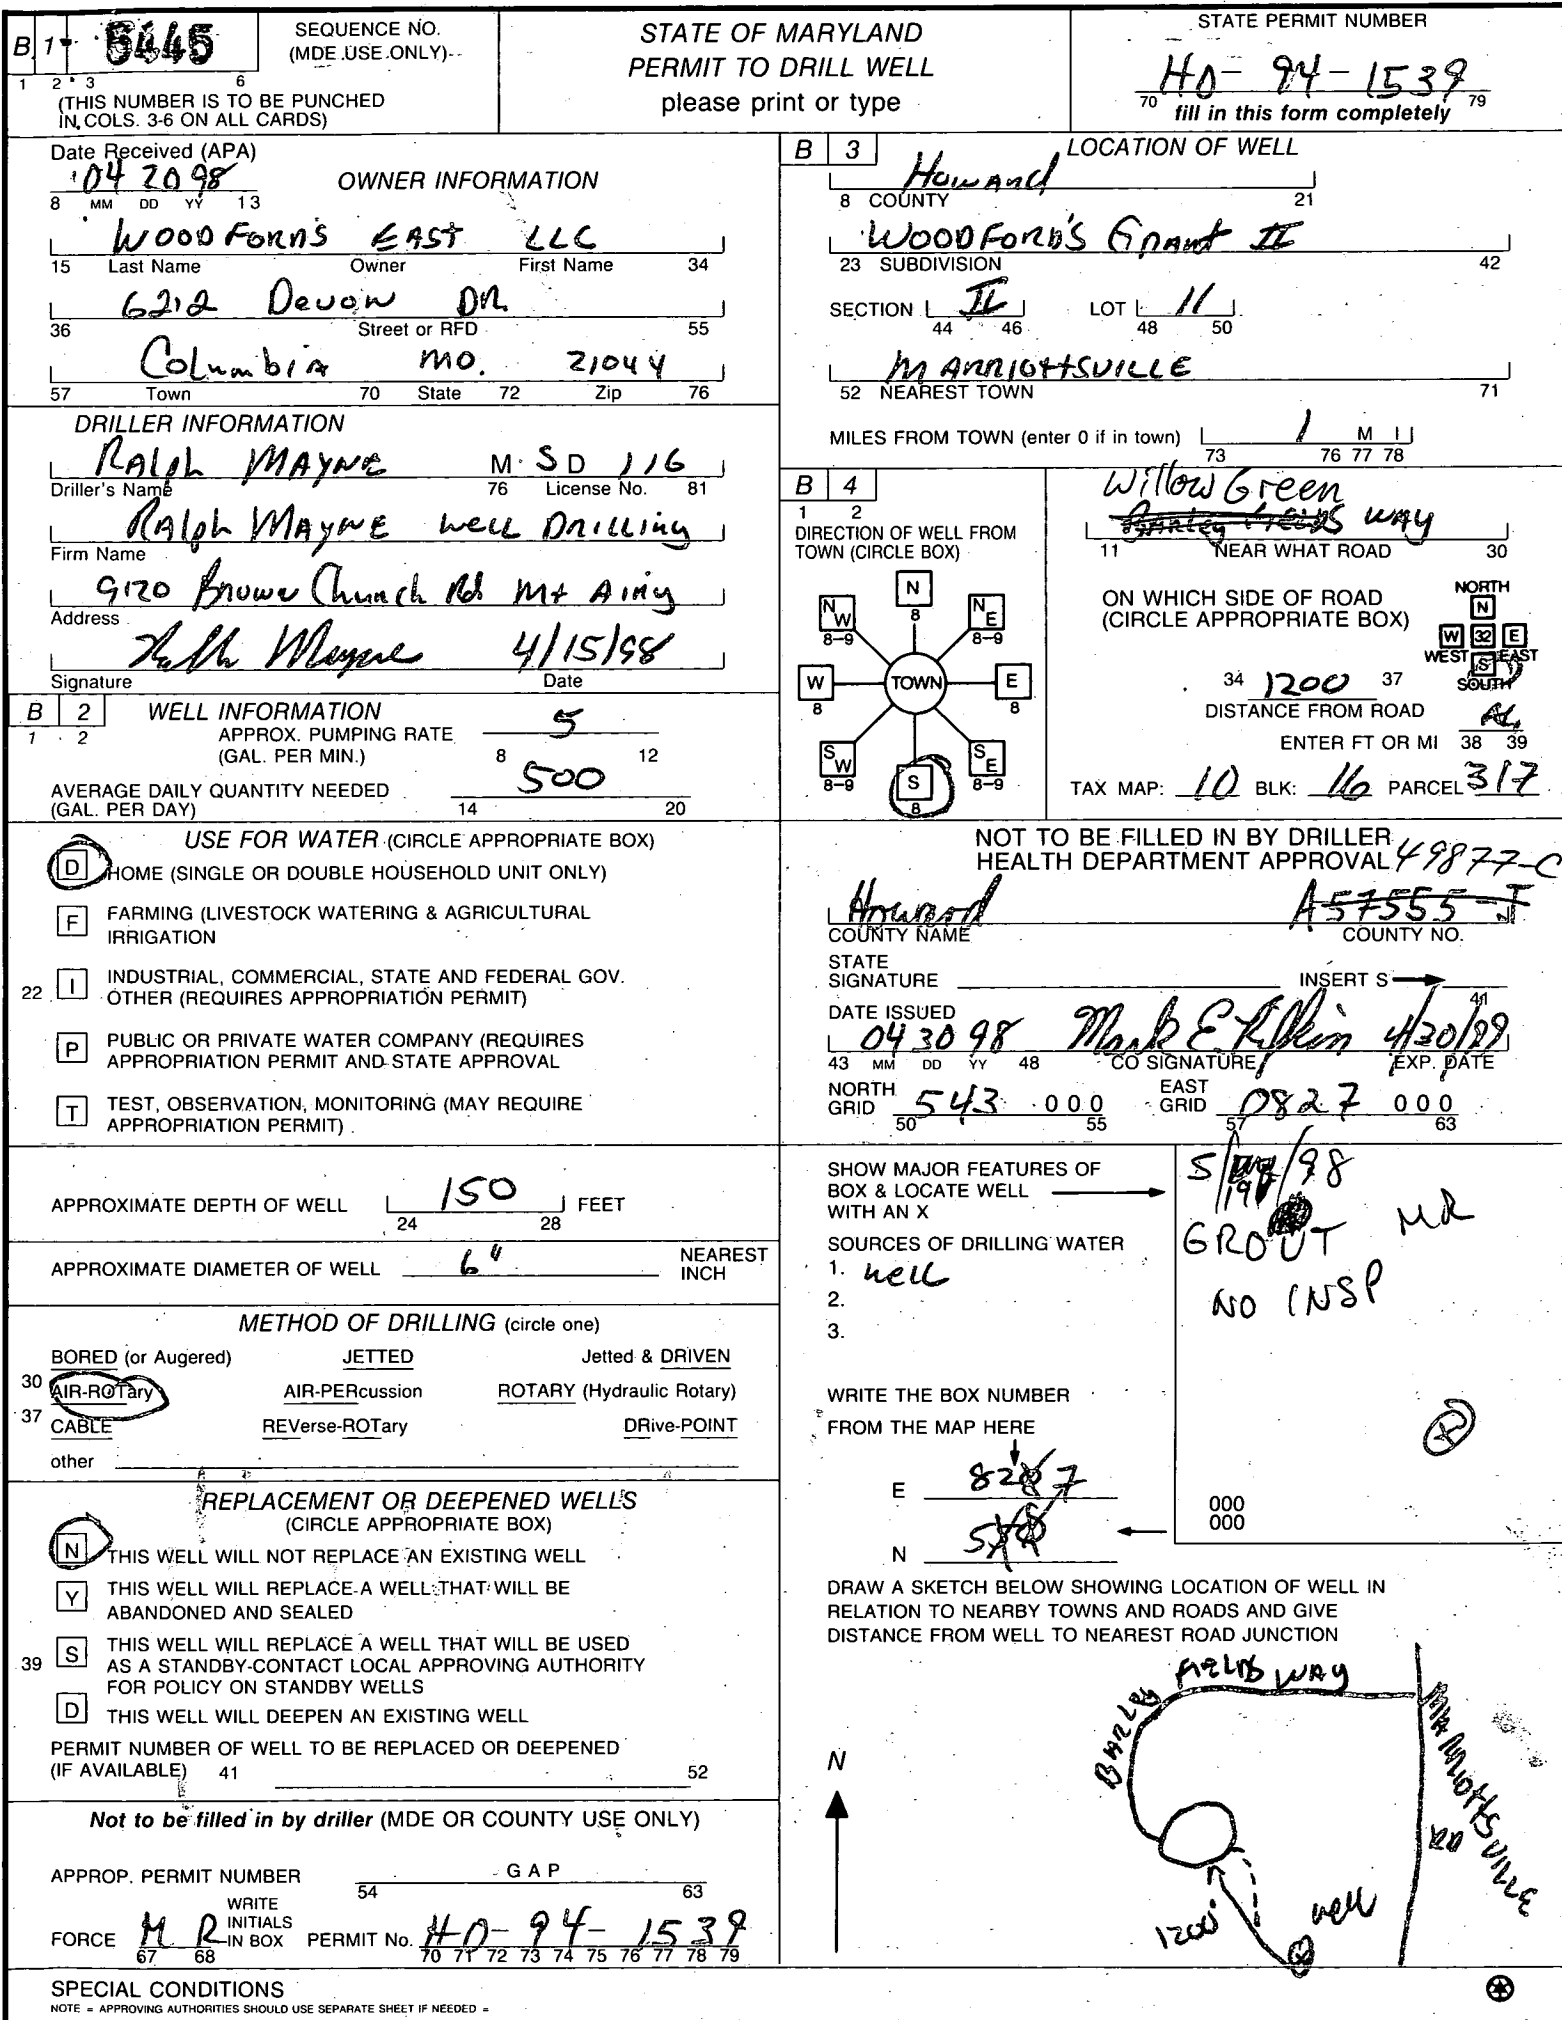 B 1 5445
1 2 3 6
SEQUENCE NO.
(MDE USE ONLY)
(THIS NUMBER IS TO BE PUNCHED
IN COLS. 3-6 ON ALL CARDS)
STATE OF MARYLAND
PERMIT TO DRILL WELL
please print or type
STATE PERMIT NUMBER
HO-94-1539
70 79
fill in this form completely
Date Received (APA)
04 20 98
8 MM DD YY 13
OWNER INFORMATION
WOODFORDS EAST LLC
15 Last Name Owner First Name 34
6212 Devon DR.
36 Street or RFD 55
Columbia MD. 21044
57 Town 70 State 72 Zip 76
DRILLER INFORMATION
Ralph MAYNE M S D 116
Driller's Name 76 License No. 81
Ralph MAYNE well Drilling
Firm Name
9120 Brown Church Rd Mt Airy
Address
Ralph Mayne 4/15/98
Signature Date
B 2
1 2
WELL INFORMATION
APPROX. PUMPING RATE
(GAL. PER MIN.) 5
8 12
AVERAGE DAILY QUANTITY NEEDED
(GAL. PER DAY) 500
14 20
USE FOR WATER (CIRCLE APPROPRIATE BOX)
D HOME (SINGLE OR DOUBLE HOUSEHOLD UNIT ONLY)
F FARMING (LIVESTOCK WATERING & AGRICULTURAL
IRRIGATION
22 I INDUSTRIAL, COMMERCIAL, STATE AND FEDERAL GOV.
OTHER (REQUIRES APPROPRIATION PERMIT)
P PUBLIC OR PRIVATE WATER COMPANY (REQUIRES
APPROPRIATION PERMIT AND STATE APPROVAL
T TEST, OBSERVATION, MONITORING (MAY REQUIRE
APPROPRIATION PERMIT)
APPROXIMATE DEPTH OF WELL 150 FEET
24 28
APPROXIMATE DIAMETER OF WELL 6" NEAREST
INCH
METHOD OF DRILLING (circle one)
BORED (or Augered) JETTED Jetted & DRIVEN
30 AIR-ROTary AIR-PERcussion ROTARY (Hydraulic Rotary)
37 CABLE REVerse-ROTary DRive-POINT
other
REPLACEMENT OR DEEPENED WELLS
(CIRCLE APPROPRIATE BOX)
N THIS WELL WILL NOT REPLACE AN EXISTING WELL
Y THIS WELL WILL REPLACE A WELL THAT WILL BE
ABANDONED AND SEALED
39 S THIS WELL WILL REPLACE A WELL THAT WILL BE USED
AS A STANDBY-CONTACT LOCAL APPROVING AUTHORITY
FOR POLICY ON STANDBY WELLS
D THIS WELL WILL DEEPEN AN EXISTING WELL
PERMIT NUMBER OF WELL TO BE REPLACED OR DEEPENED
(IF AVAILABLE) 41 52
Not to be filled in by driller (MDE OR COUNTY USE ONLY)
APPROP. PERMIT NUMBER G A P
54 63
FORCE M R WRITE
INITIALS
IN BOX PERMIT No. HO-94-1539
67 68 70 71 72 73 74 75 76 77 78 79
SPECIAL CONDITIONS
NOTE = APPROVING AUTHORITIES SHOULD USE SEPARATE SHEET IF NEEDED =
B 3
LOCATION OF WELL
Howard
8 COUNTY 21
WOODFORD'S Grant II
23 SUBDIVISION 42
SECTION II LOT 11
44 46 48 50
MARRIOTTSVILLE
52 NEAREST TOWN 71
MILES FROM TOWN (enter 0 if in town) 1 M I
73 76 77 78
B 4
1 2
DIRECTION OF WELL FROM
TOWN (CIRCLE BOX)
N
8
NW
8-9
NE
8-9
W
8
TOWN
E
8
SW
8-9
S
8
SE
8-9
Willow Green
Barley FIELDS WAY
11 NEAR WHAT ROAD 30
ON WHICH SIDE OF ROAD
(CIRCLE APPROPRIATE BOX)
NORTH
N
W 32 E
WEST EAST
S
SOUTH
34 1200 37
DISTANCE FROM ROAD
ENTER FT OR MI 38 39
TAX MAP: 10 BLK: 16 PARCEL 317
NOT TO BE FILLED IN BY DRILLER
HEALTH DEPARTMENT APPROVAL 49877-C
Howard A57555-J
COUNTY NAME COUNTY NO.
STATE
SIGNATURE INSERT S
41
DATE ISSUED
04 30 98 Mark E Rifkin 4/30/99
43 MM DD YY 48 CO SIGNATURE EXP. DATE
NORTH
GRID 543 000 EAST
GRID 0827 000
50 55 57 63
SHOW MAJOR FEATURES OF
BOX & LOCATE WELL
WITH AN X
SOURCES OF DRILLING WATER
1. well
2.
3.
5/19/98
GROUT MR
NO INSP
X
000
000
WRITE THE BOX NUMBER
FROM THE MAP HERE
E 827
N
DRAW A SKETCH BELOW SHOWING LOCATION OF WELL IN
RELATION TO NEARBY TOWNS AND ROADS AND GIVE
DISTANCE FROM WELL TO NEAREST ROAD JUNCTION
N
BARLEY FIELDS WAY
MARRIOTTSVILLE RD
1200'
well